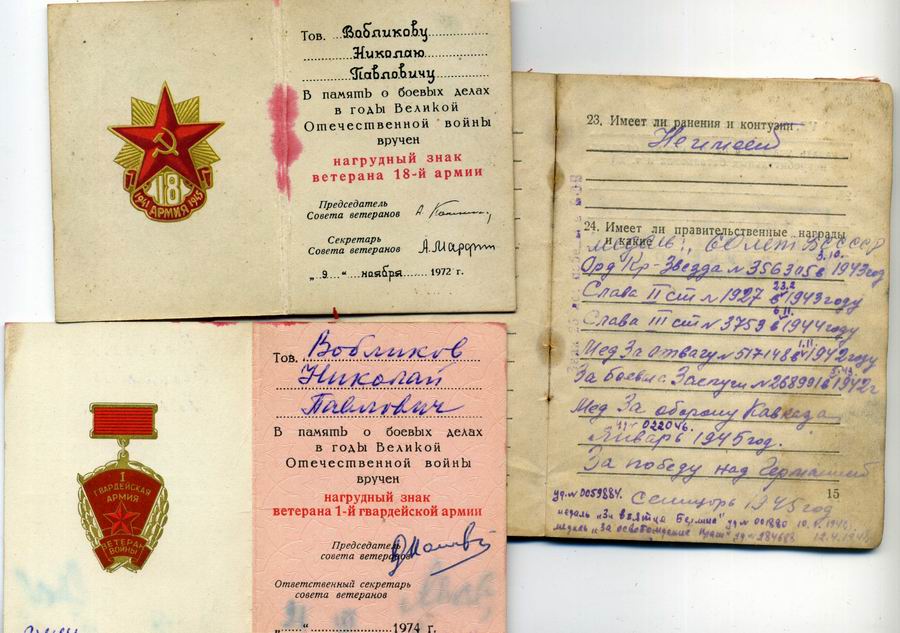 18
1941 АРМИЯ 1945
Тов. Вобликову
Николаю
Павловичу
В память о боевых делах
в годы Великой
Отечественной войны
вручен
нагрудный знак
ветерана 18-й армии
Председатель
Совета ветеранов
Секретарь
Совета ветеранов
„ 9 “ ноября 1972 г.
I
ГВАРДЕЙСКАЯ
АРМИЯ
ВЕТЕРАН
ВОЙНЫ
Тов. Вобликов
Николай
Павлович
В память о боевых делах
в годы Великой
Отечественной войны
вручен
нагрудный знак
ветерана 1-й гвардейской армии
Председатель
совета ветеранов
Ответственный секретарь
совета ветеранов
1974 г.
23. Имеет ли ранения и контузии
Не имеет
24. Имеет ли правительственные награды
и какие
медаль 60 лет ВС СССР
3.10.
Орд Кр-Звезда № 356305 в 1943 год
23.2
Слава II ст № 1927 в 1943 году
6.11.
Слава III ст № 3759 в 1944 году
1.11.
Мед За отвагу № 517148 в 1942 году
За боевые Заслуги № 268991 в 1942 г
Мед За оборону Кавказа
022046.
Январь 1945 год.
За победу над Германией
15
уд. № 0059884. 1945 год
медаль „За взятие Берлина" уд № 001880
медаль „За освобождение Праги" уд №